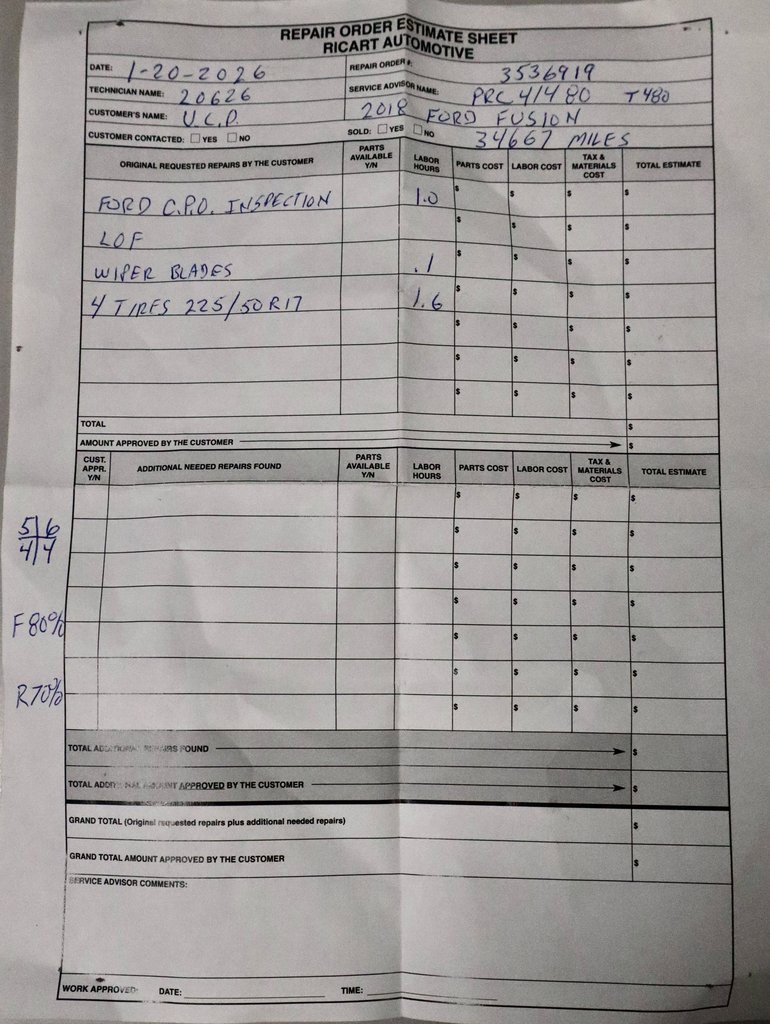 REPAIR ORDER ESTIMATE SHEET
RICART AUTOMOTIVE
DATE: 1-20-2026
REPAIR ORDER #: 3536919
TECHNICIAN NAME: 20626
SERVICE ADVISOR NAME: PRC41480 T480
CUSTOMER'S NAME: U.C.D.
2018 FORD FUSION
CUSTOMER CONTACTED: YES NO
SOLD: YES NO
34667 MILES
ORIGINAL REQUESTED REPAIRS BY THE CUSTOMER PARTS AVAILABLE Y/N LABOR HOURS PARTS COST LABOR COST TAX & MATERIALS COST TOTAL ESTIMATE
FORD C.P.O. INSPECTION 1.0 $ $ $ $
LOF $ $ $ $
WIPER BLADES .1 $ $ $ $
4 TIRES 225/50R17 1.6 $ $ $ $
$ $ $ $
$ $ $ $
$ $ $ $
TOTAL $
AMOUNT APPROVED BY THE CUSTOMER $
CUST. APPR. Y/N ADDITIONAL NEEDED REPAIRS FOUND PARTS AVAILABLE Y/N LABOR HOURS PARTS COST LABOR COST TAX & MATERIALS COST TOTAL ESTIMATE
$ $ $ $
5|6 $ $ $ $
4|4 $ $ $ $
$ $ $ $
F80% $ $ $ $
$ $ $ $
R70% $ $ $ $
TOTAL ADDITIONAL REPAIRS FOUND $
TOTAL ADDITIONAL AMOUNT APPROVED BY THE CUSTOMER $
GRAND TOTAL (Original requested repairs plus additional needed repairs) $
GRAND TOTAL AMOUNT APPROVED BY THE CUSTOMER $
SERVICE ADVISOR COMMENTS:
WORK APPROVED: DATE: TIME: